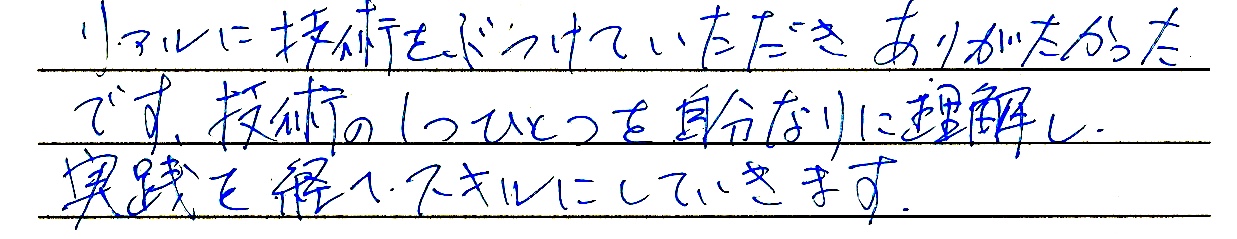 リアルに技術をぶつけていただきありがたかった
です、技術の1つひとつを自分なりに理解し、
実践を経へ、スキルにしていきます。